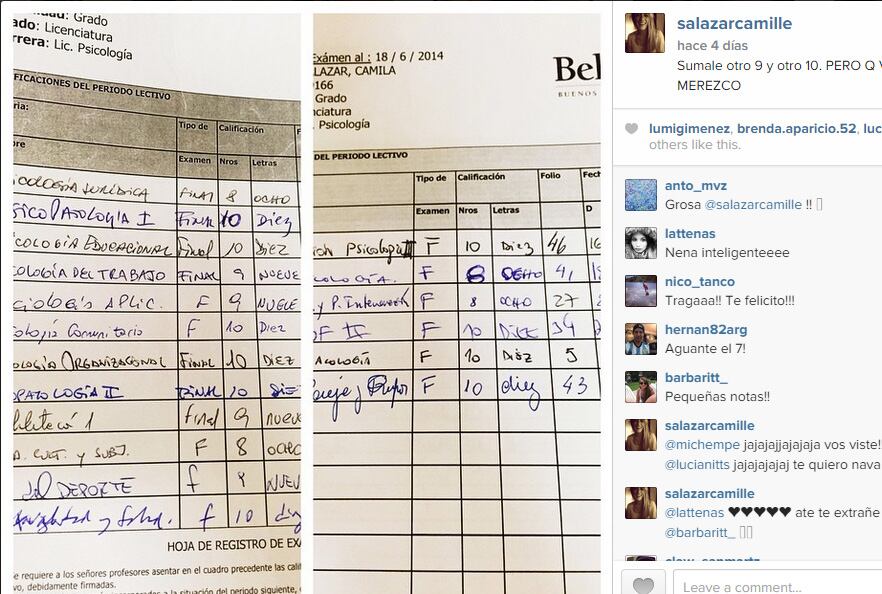 Grado
Licenciatura
Lic. Psicología
FICACIONES DEL PERIODO LECTIVO
Tipo de Calificación
Examen Nros Letras
COLOGÍA JURÍDICA Final 8 OCHO
SICOPATOLOGÍA I Final 10 Diez
COLOGÍA EDUCACIONAL Final 10 Diez
COLOGÍA DEL TRABAJO FINAL 9 NUEVE
APLIC. F 9 NUEVE
Comunitaria F 10 Diez
OLOGÍA ORGANIZACIONAL Final 10 DIEZ
OPATOLOGÍA II FINAL 10 DIE
1 final 9 nueve
CULT. y SUBJ. F 8 OCHO
del DEPORTE f 9 NUEV
y f 10
HOJA DE REGISTRO DE EXA
e requiere a los señores profesores asentar en el cuadro precedente las calif
vo, debidamente firmadas.
situación del periodo siguiente,
Exámen al : 18 / 6 / 2014
LAZAR, CAMILA
166
Grado
nciatura
. Psicología
Bel
BUENOS
DEL PERIODO LECTIVO
Tipo de Calificación Folio Fech
Examen Nros Letras D
Psicológica II F 10 Diez 46 16
COLOGÍA. F 8 OCHO 41
y P. F 8 OCHO 27
II F 10 DIEZ 34
ACOLOGÍA F 10 Diez 5
F 10 diez 43
salazarcamille
hace 4 días
Sumale otro 9 y otro 10. PERO Q V
MEREZCO
lumigimenez, brenda.aparicio.52, luc
others like this.
anto_mvz
Grosa @salazarcamille !!
lattenas
Nena inteligenteeee
nico_tanco
Tragaaa!! Te felicito!!!
hernan82arg
Aguante el 7!
barbaritt_
Pequeñas notas!!
salazarcamille
@michempe jajajajjajajaja vos viste!
@lucianitts jajajajajaj te quiero nava
salazarcamille
@lattenas ♥♥♥♥♥ ate te extrañe
@barbaritt_
Leave a comment...